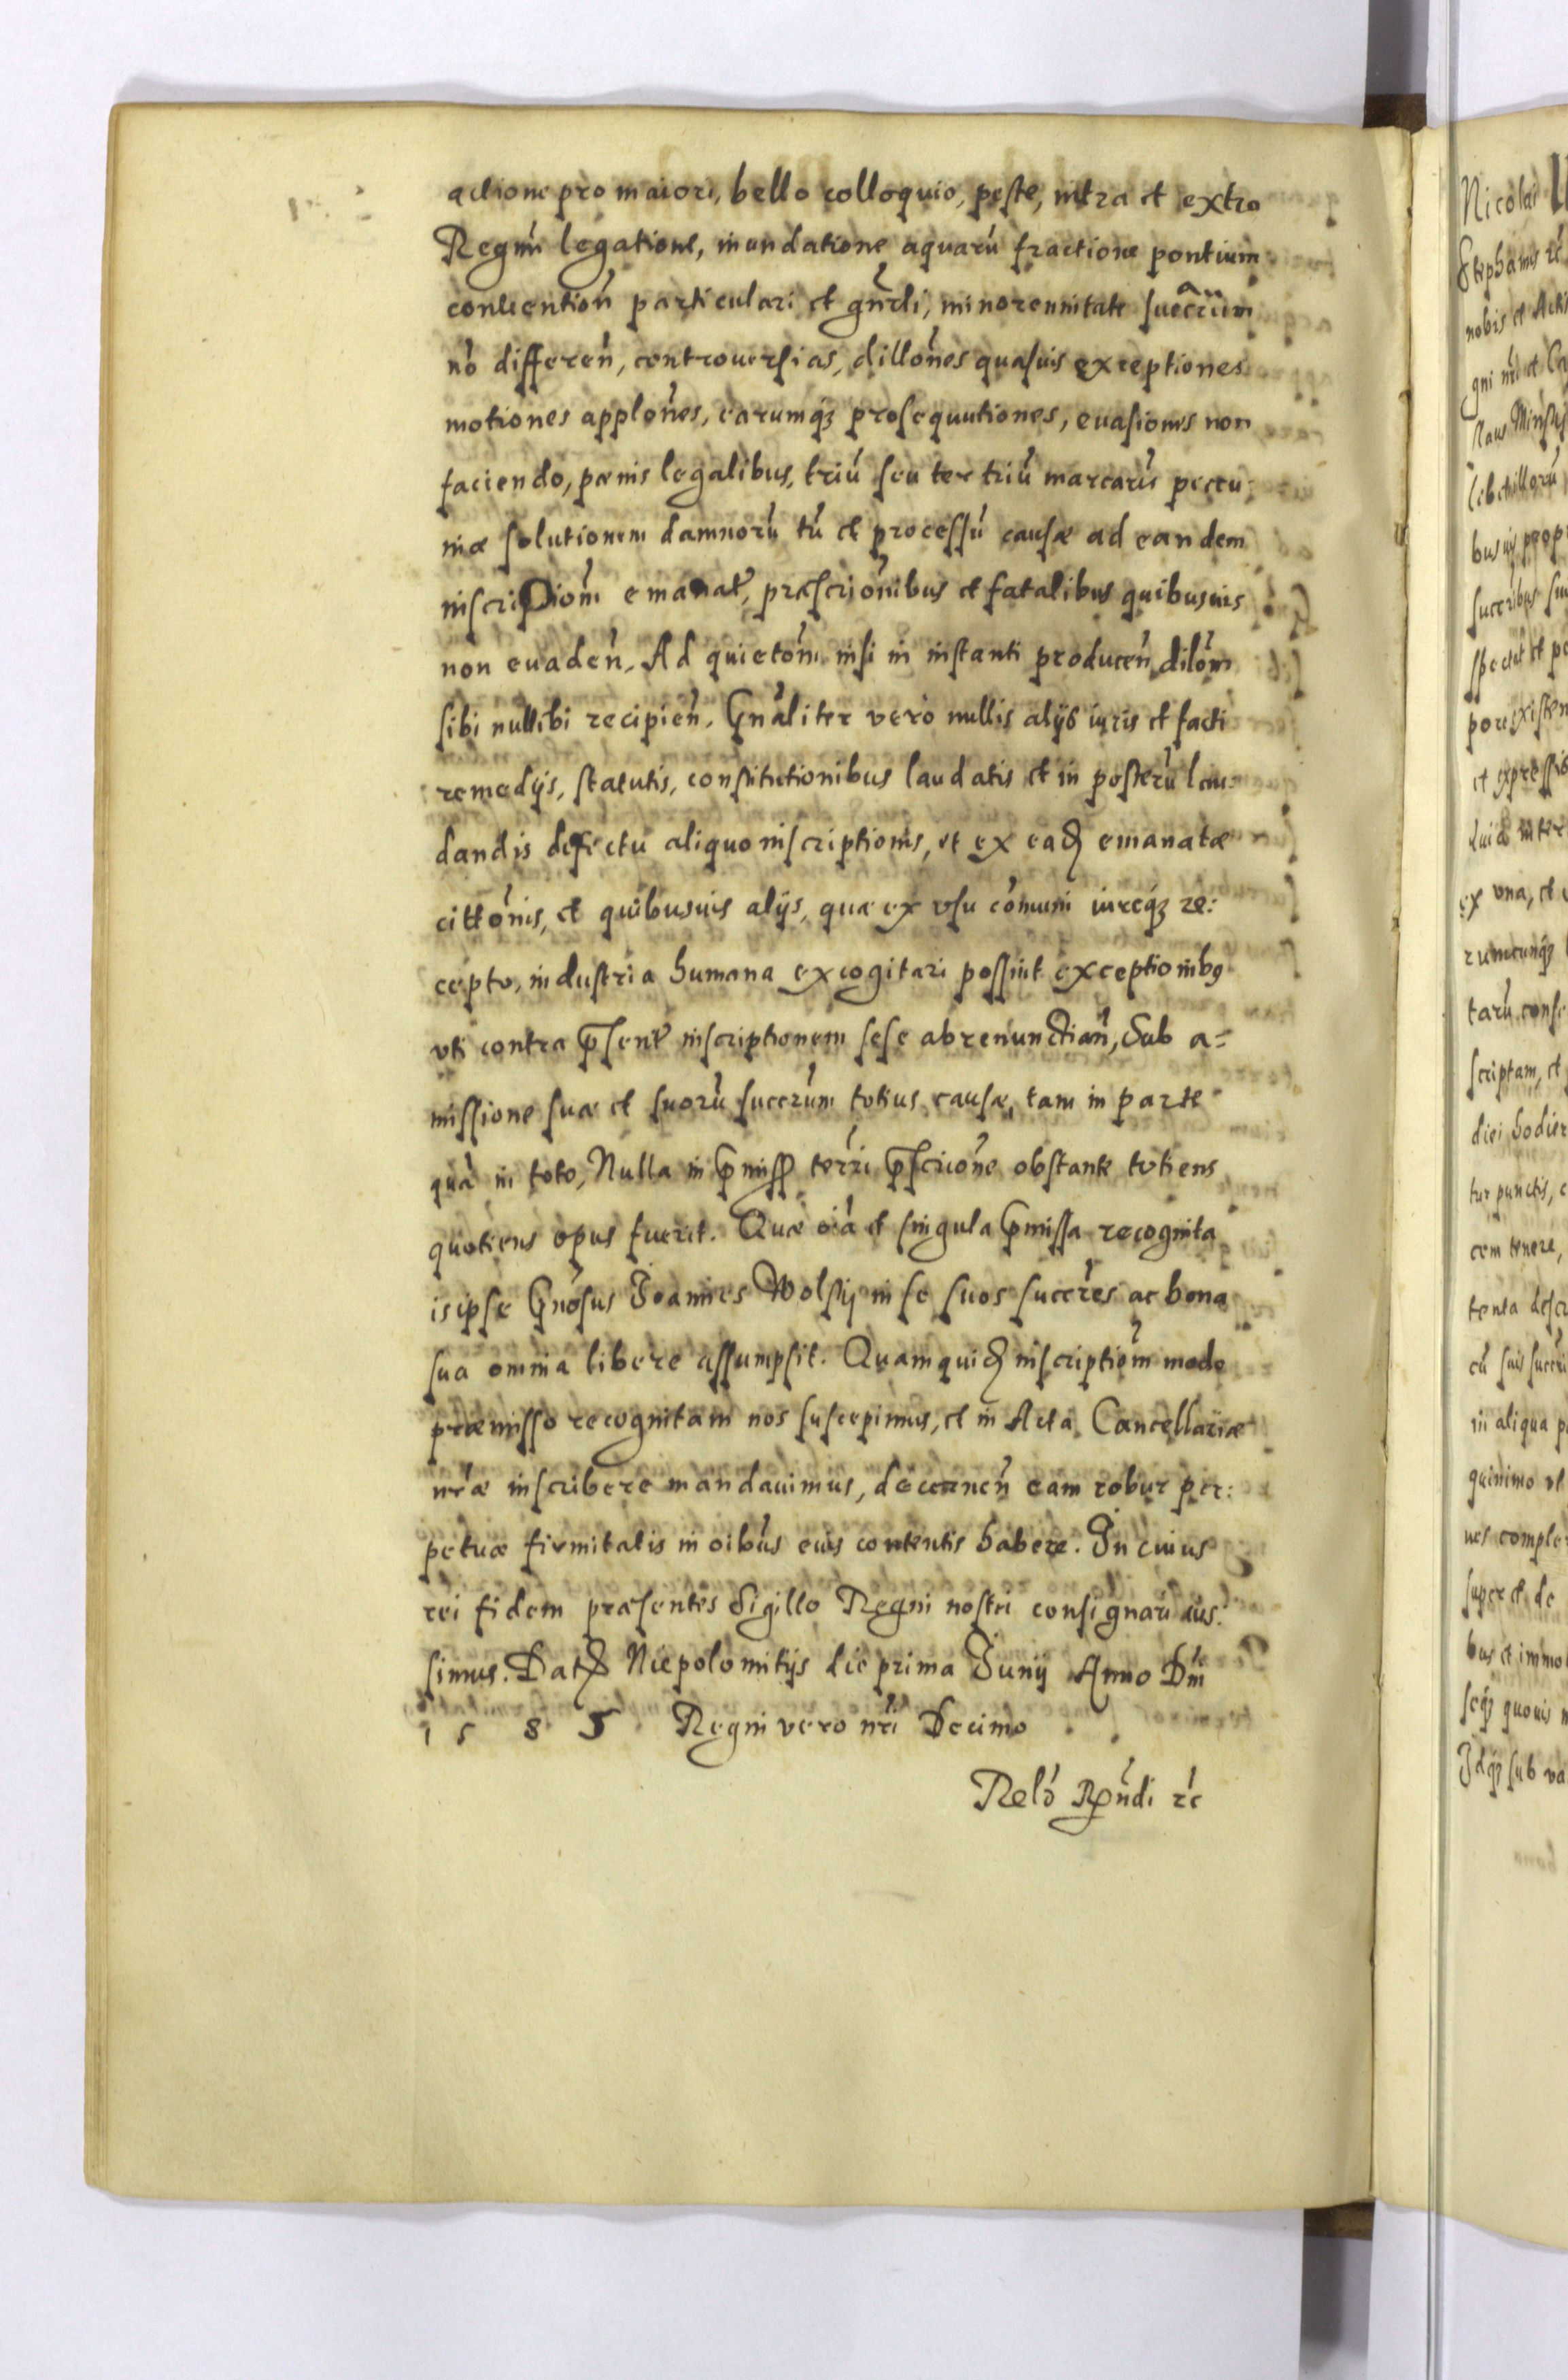 actione pro maiori, bello colloquio, peste, intra et extra
Regnũ legatione, inundatione aquarũ fractione pontium
conventioñ particulari et gñrli, minorennitate
nõ differeñ, controuersias, dillões quasuis exceptiones
motiones applões, earumq3 prosequutiones, euasiones non
faciendo, pœnis legalibus, triũ seu ter triũ marcarũ pecu:
niæ solutionem damnorũ tũ et processũ causæ ad eandem
inscriptiom̃ emanat, præscriõnibus et fatalibus quibusuis
non euadeñ, Ad quietom̃ nisi in instanti produceñ dilõm
sibi nullibi recipieñ. Gnãliter verò nullis alijs iuris et facti
remedijs, statutis, constitutionibus laudatis et in posterũ lau:
dandis defectu aliquo inscriptionis, et ex ead emanatæ
cittõnis, et quibusuis alijs, quæ ex vsu cõmuni iureq3 re:
cepto, industria humana excogitari possint exceptionibq
vti contra pñsent inscriptionem sese abrenunctiañ, Sub a=
missione suæ et suorũ succrũm totius causæ, tam in parte
quã in toto, Nulla in pmiss terrĩ pscriõne obstante totiens
quotiens opus fuerit. Quæ oĩa et singula pmissa recognita
is ipse Gnõsus Joannes Wolsij in se suos succẽres ac bona
sua omnia libere assumpsit. Quamquid inscriptiom̃ modo
præmisso recognitam nos suscepimus, et in Acta Cancellariæ
nr̃æ inscribere mandauimus, decerneñ eam robur per:
petuæ firmitatis in oĩbus eius contentis habere. In cuius
rei fidem præsentes Sigillo Regni nostri consignari ius:
simus. Dat Niepolomitijs die prima Junij Anno Dñi
1 5 8 5 Regni vero nr̃i Decimo
Relõ Rñdi rc
Nicolai
Stephanus rc
nobis et Actis
gni nr̃i et Ca
bus
ex una, et
tarũ conse
scriptam, et
diei hodier
tur punctis, c
cem tenere,
cũ suis succri
in aliqua p
quinimo et
nes comple
super et de
bus et immo
seq3 quouis m
Idq3 sub va